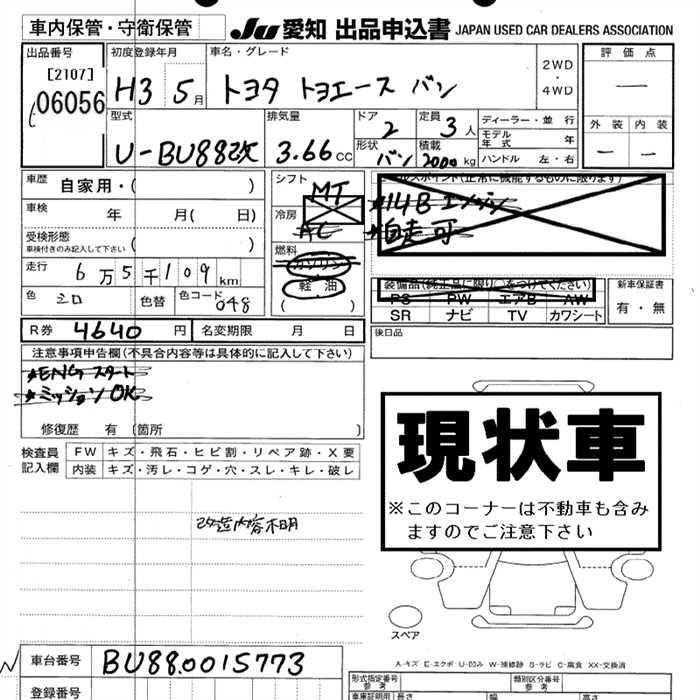 車内保管・守衛保管 JU 愛知 出品申込書 JAPAN USED CAR DEALERS ASSOCIATION
出品番号 初度登録年月 車名・グレード 評価点
[2107] H3 5月 トヨタ トヨエース バン 2WD ・ 4WD —
06056
型式 排気量 ドア 定員 ディーラー・並行 外装 内装
U-BU88改 3.66cc 2 3人 モデル年式 年 — —
形状 積載
バン 2000kg ハンドル 左・右
車歴 自家用・( ) シフト MT セールスポイント(正常に機能するものに限ります)
車検 年 月( 日) 冷房 AC ★14Bエンジン
受検形態 ★自走可
車検付きのみ記入して下さい ( ) 燃料
走行 6万5千109km ガソリン 装備品(純正品に限り○をつけてください) 新車保証書
色 シロ 色替 色コード 048 軽油 PS PW エアB AW 有・無
( ) SR ナビ TV カワシート
R券 4640円 名変期限 月 日 後日品
注意事項申告欄(不具合内容等は具体的に記入して下さい)
★ENGスタート
★ミッションOK
修復歴 有(箇所 )
現状車
※このコーナーは不動車も含み
ますのでご注意下さい
検査員 FW キズ・飛石・ヒビ割・リペア跡・X要
記入欄 内装 キズ・汚レ・コゲ・穴・スレ・キレ・破レ
改造内容不明
スペア
A-キズ E-エクボ U-凹み W-補修跡 S-サビ C-腐食 XX-交換済
車台番号 BU88.0015773
登録番号
形式指定番号 参考 類別区分番号 参考
車庫証明用 長さ 幅 高さ